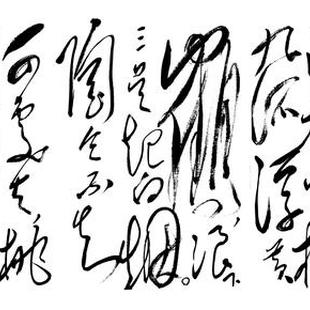 九派浮黄
鶴、浪下
三吴起白烟。
陶令不知
何處去、桃